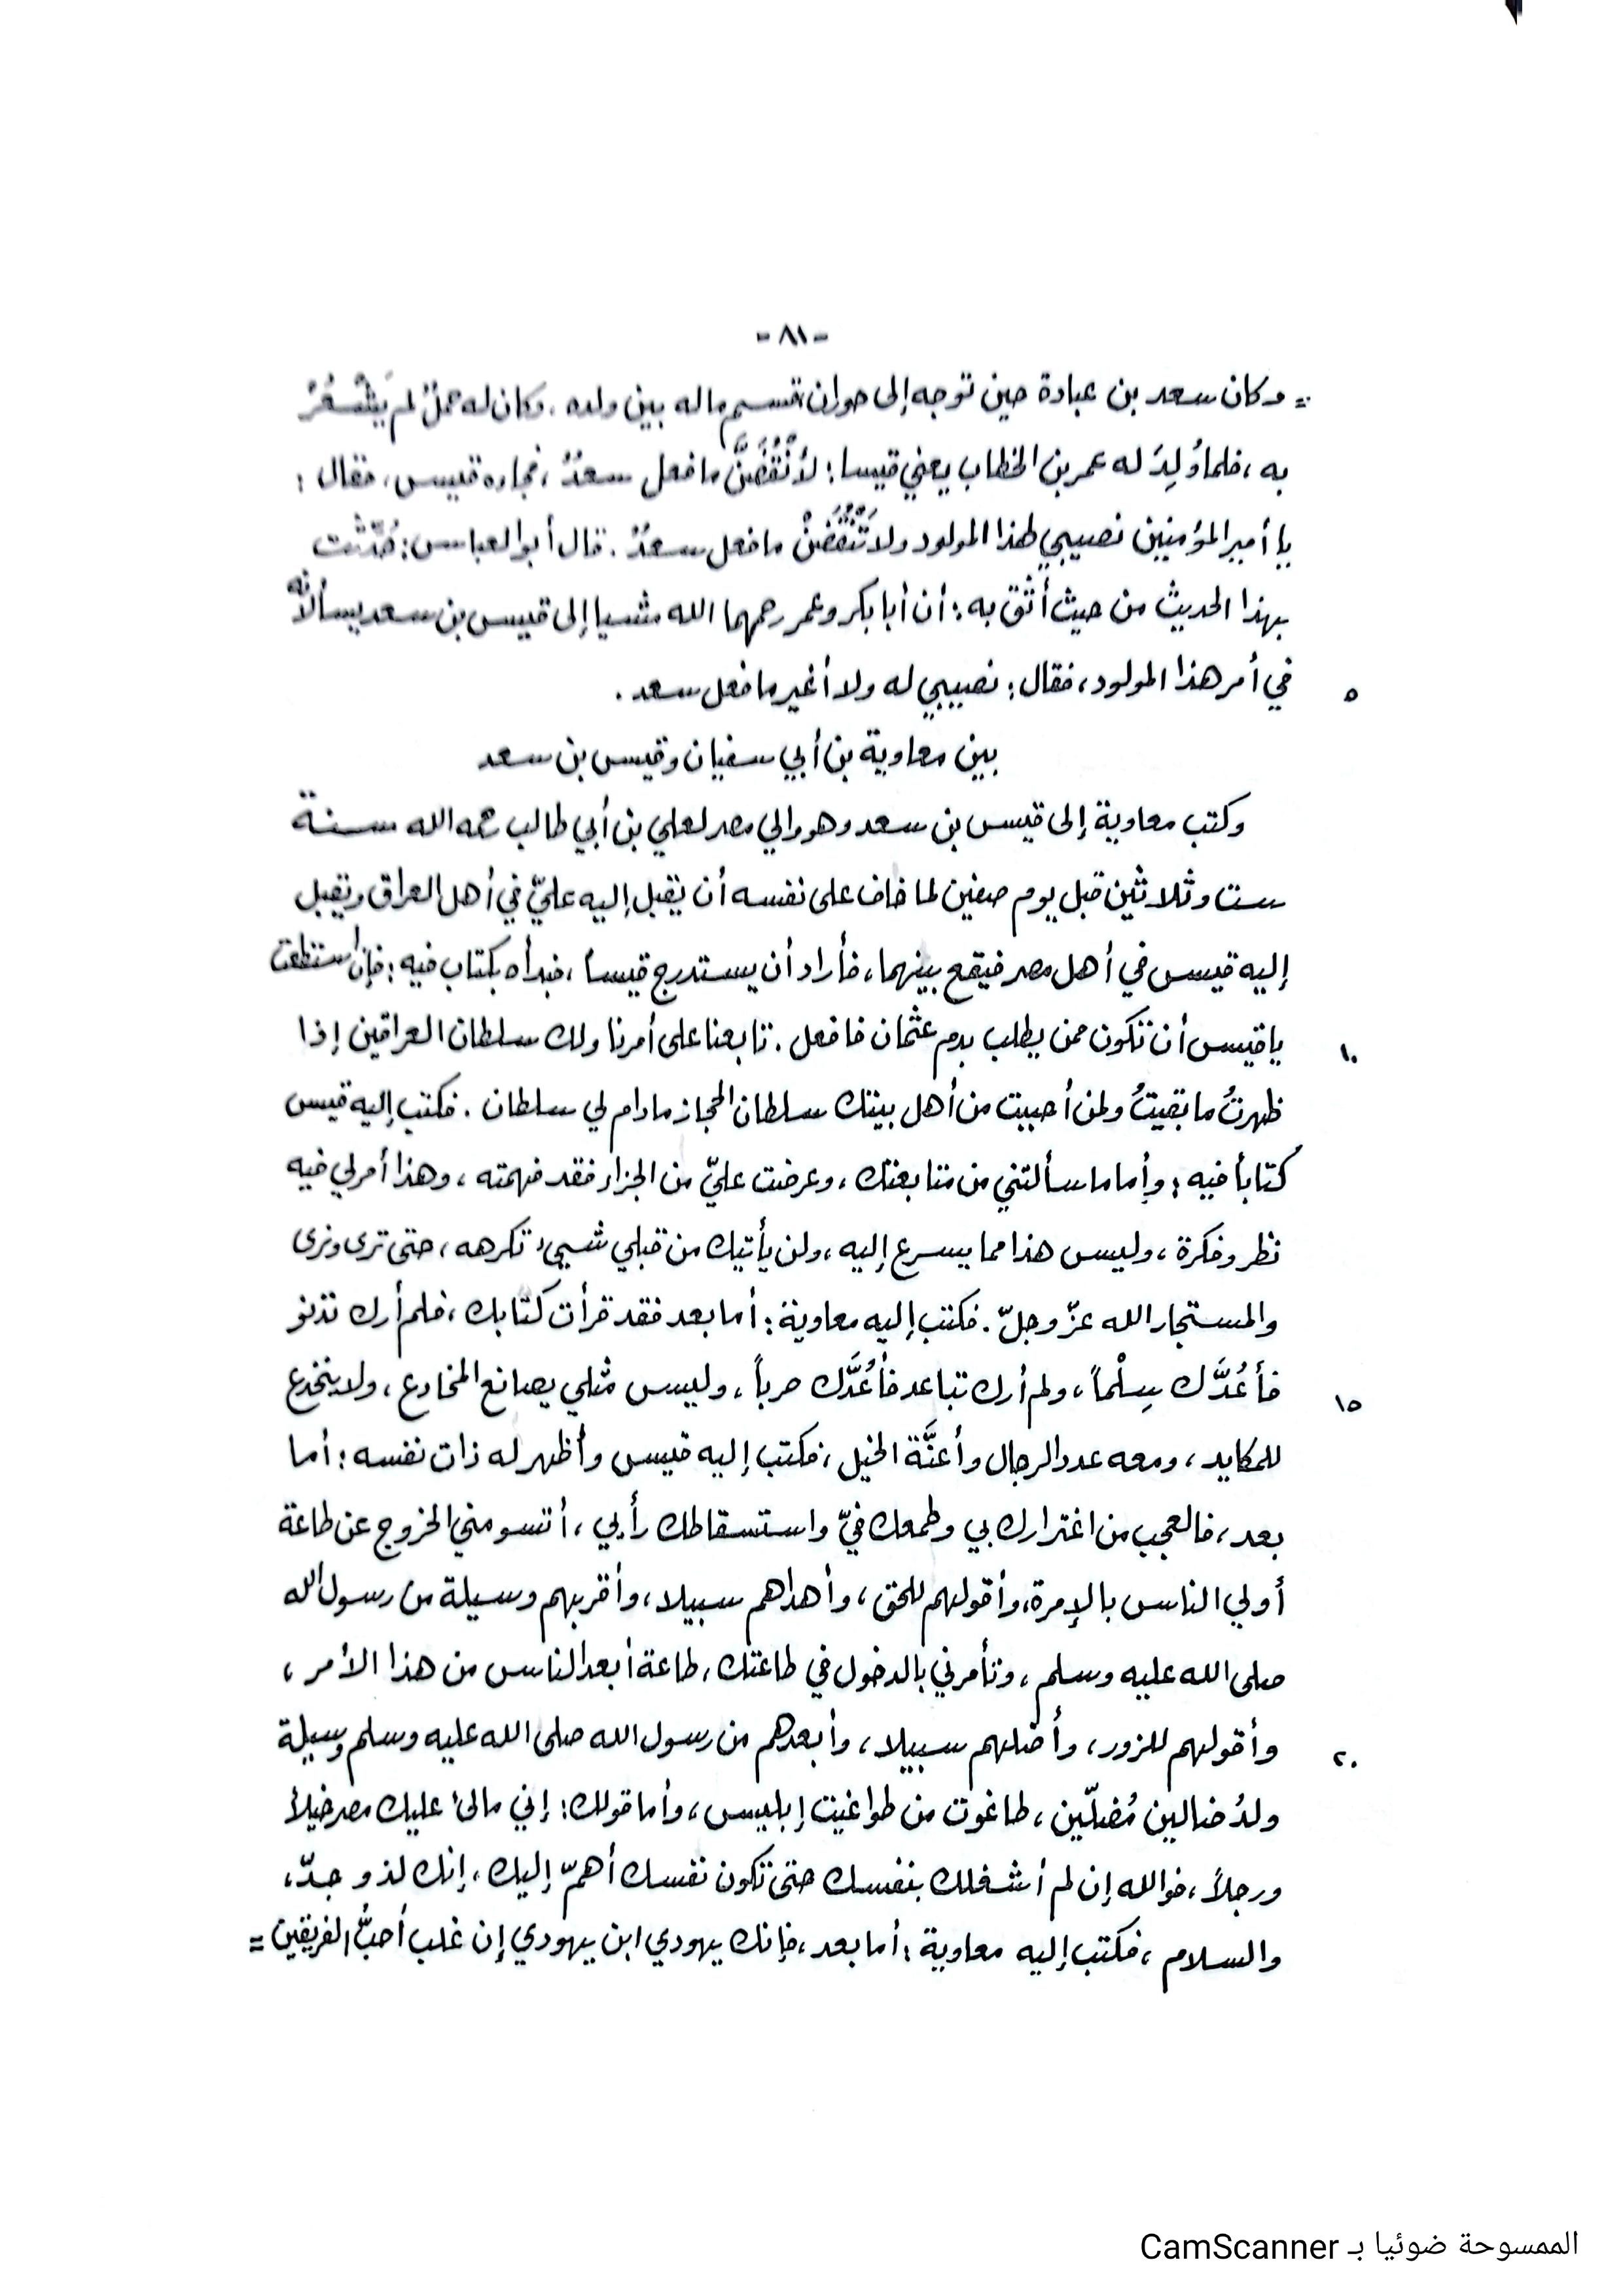 - ٨١ -
= وكان سعد بن عبادة حين توجه إلى حوران قسم ماله بين ولده . وكان له حملٌ لم يَشْعُرْ
به ، فلما وُلِدَ له عمر بن الخطاب يعني قيسا : لأنْقُضَنَّ ما فعل سعدٌ ، فجاءه قيس ، فقال :
يا أمير المؤمنين نصيبي لهذا المولود ولا تَنْقُضَنْ ما فعل سعدٌ . قال أبو العباس : حُدِّثت
بهذا الحديث من حيث أثق به : أن أبا بكر وعمر رحمهما الله مشيا إلى قيس بن سعد يسألانه
في أمر هذا المولود ، فقال : نصيبي له ولا أغير ما فعل سعد . ٥
بين معاوية بن أبي سفيان وقيس بن سعد
وكتب معاوية إلى قيس بن سعد وهو والي مصر لعلي بن أبي طالب رحمه الله سنة
ست وثلاثين قبل يوم صفين لما خاف على نفسه أن يقبل إليه عليّ في أهل العراق ويقبل
إليه قيس في أهل مصر فيقع بينهما ، فأراد أن يستدرج قيساً ، فبدأه بكتاب فيه : فإن استطعت
يا قيس أن تكون ممن يطلب بدم عثمان فافعل . تابعنا على أمرنا ولك سلطان العراقين إذا ١٠
ظهرتُ ما بقيتُ ولمن أحببت من أهل بيتك سلطان الحجاز مادام لي سلطان . فكتب إليه قيس
كتاباً فيه : وأما ما سألتني من متابعتك ، وعرضت عليّ من الجزاء فقد فهمته ، وهذا أمر لي فيه
نظر وفكرة ، وليس هذا مما يسرع إليه ، ولن يأتيك من قبلي شيء تكرهه ، حتى ترى ونرى
والمستجار الله عزّ وجلّ . فكتب إليه معاوية : أما بعد فقد قرأت كتابك ، فلم أرك تدنو
فأعُدَّك سِلْماً ، ولم أرك تباعد فأعُدَّك حرباً ، وليس مثلي يصانع المخادع ، ولا ينخدع ١٥
للمكايد ، ومعه عدد الرجال وأعنَّة الخيل ، فكتب إليه قيس وأظهر له ذات نفسه : أما
بعد ، فالعجب من اغترارك بي وطمعك فيّ واستسقاطك رأيي ، أتسومني الخروج عن طاعة
أولي الناس بالإمرة ، وأقولهم للحق ، وأهداهم سبيلا ، وأقربهم وسيلة من رسول الله
صلى الله عليه وسلم ، وتأمرني بالدخول في طاعتك ، طاعة أبعد الناس من هذا الأمر ،
وأقولهم للزور ، وأضلهم سبيلا ، وأبعدهم من رسول الله صلى الله عليه وسلم وسيلة ٢٠
ولدُ ضالين مُضلّين ، طاغوت من طواغيت إبليس ، وأما قولك : إني مالئ عليك مصر خيلاً
ورجلاً ، فوالله إن لم أشغلك بنفسك حتى تكون نفسك أهمّ إليك ، إنك لذو جدّ ،
والسلام ، فكتب إليه معاوية : أما بعد ، فإنك يهودي ابن يهودي إن غلب أحبُّ الفريقين =
الممسوحة ضوئيا بـ CamScanner